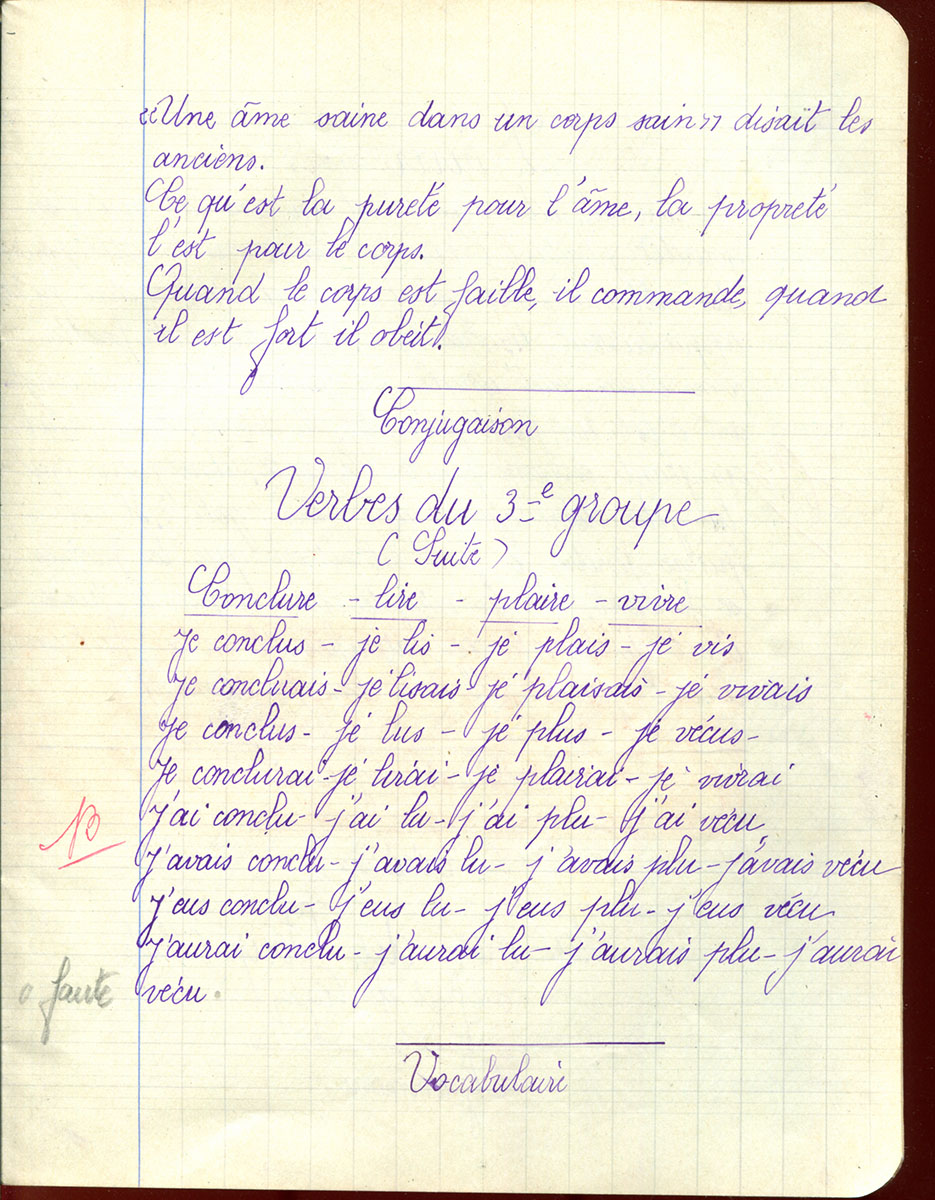 “Une âme saine dans un corps sain” disait les
anciens.
Ce qu'est la pureté pour l'âme, la propreté
l'est pour le corps.
Quand le corps est faible, il commande, quand
il est fort il obéit.
Conjugaison
Verbes du 3e groupe
(Suite)
Conclure - lire - plaire - vivre
Je conclus - je lis - je plais - je vis
Je concluais - je lisais - je plaisais - je vivais
Je conclus - je lus - je plus - je vécus -
Je conclurai - je lirai - je plairai - je vivrai
J'ai conclu - j'ai lu - j'ai plu - j'ai vécu
J'avais conclu - j'avais lu - j'avais plu - j'avais vécu
J'eus conclu - j'eus lu - j'eus plu - j'eus vécu
J'aurai conclu - j'aurai lu - j'aurais plu - j'aurai
vécu.
0 faute
Vocabulaire